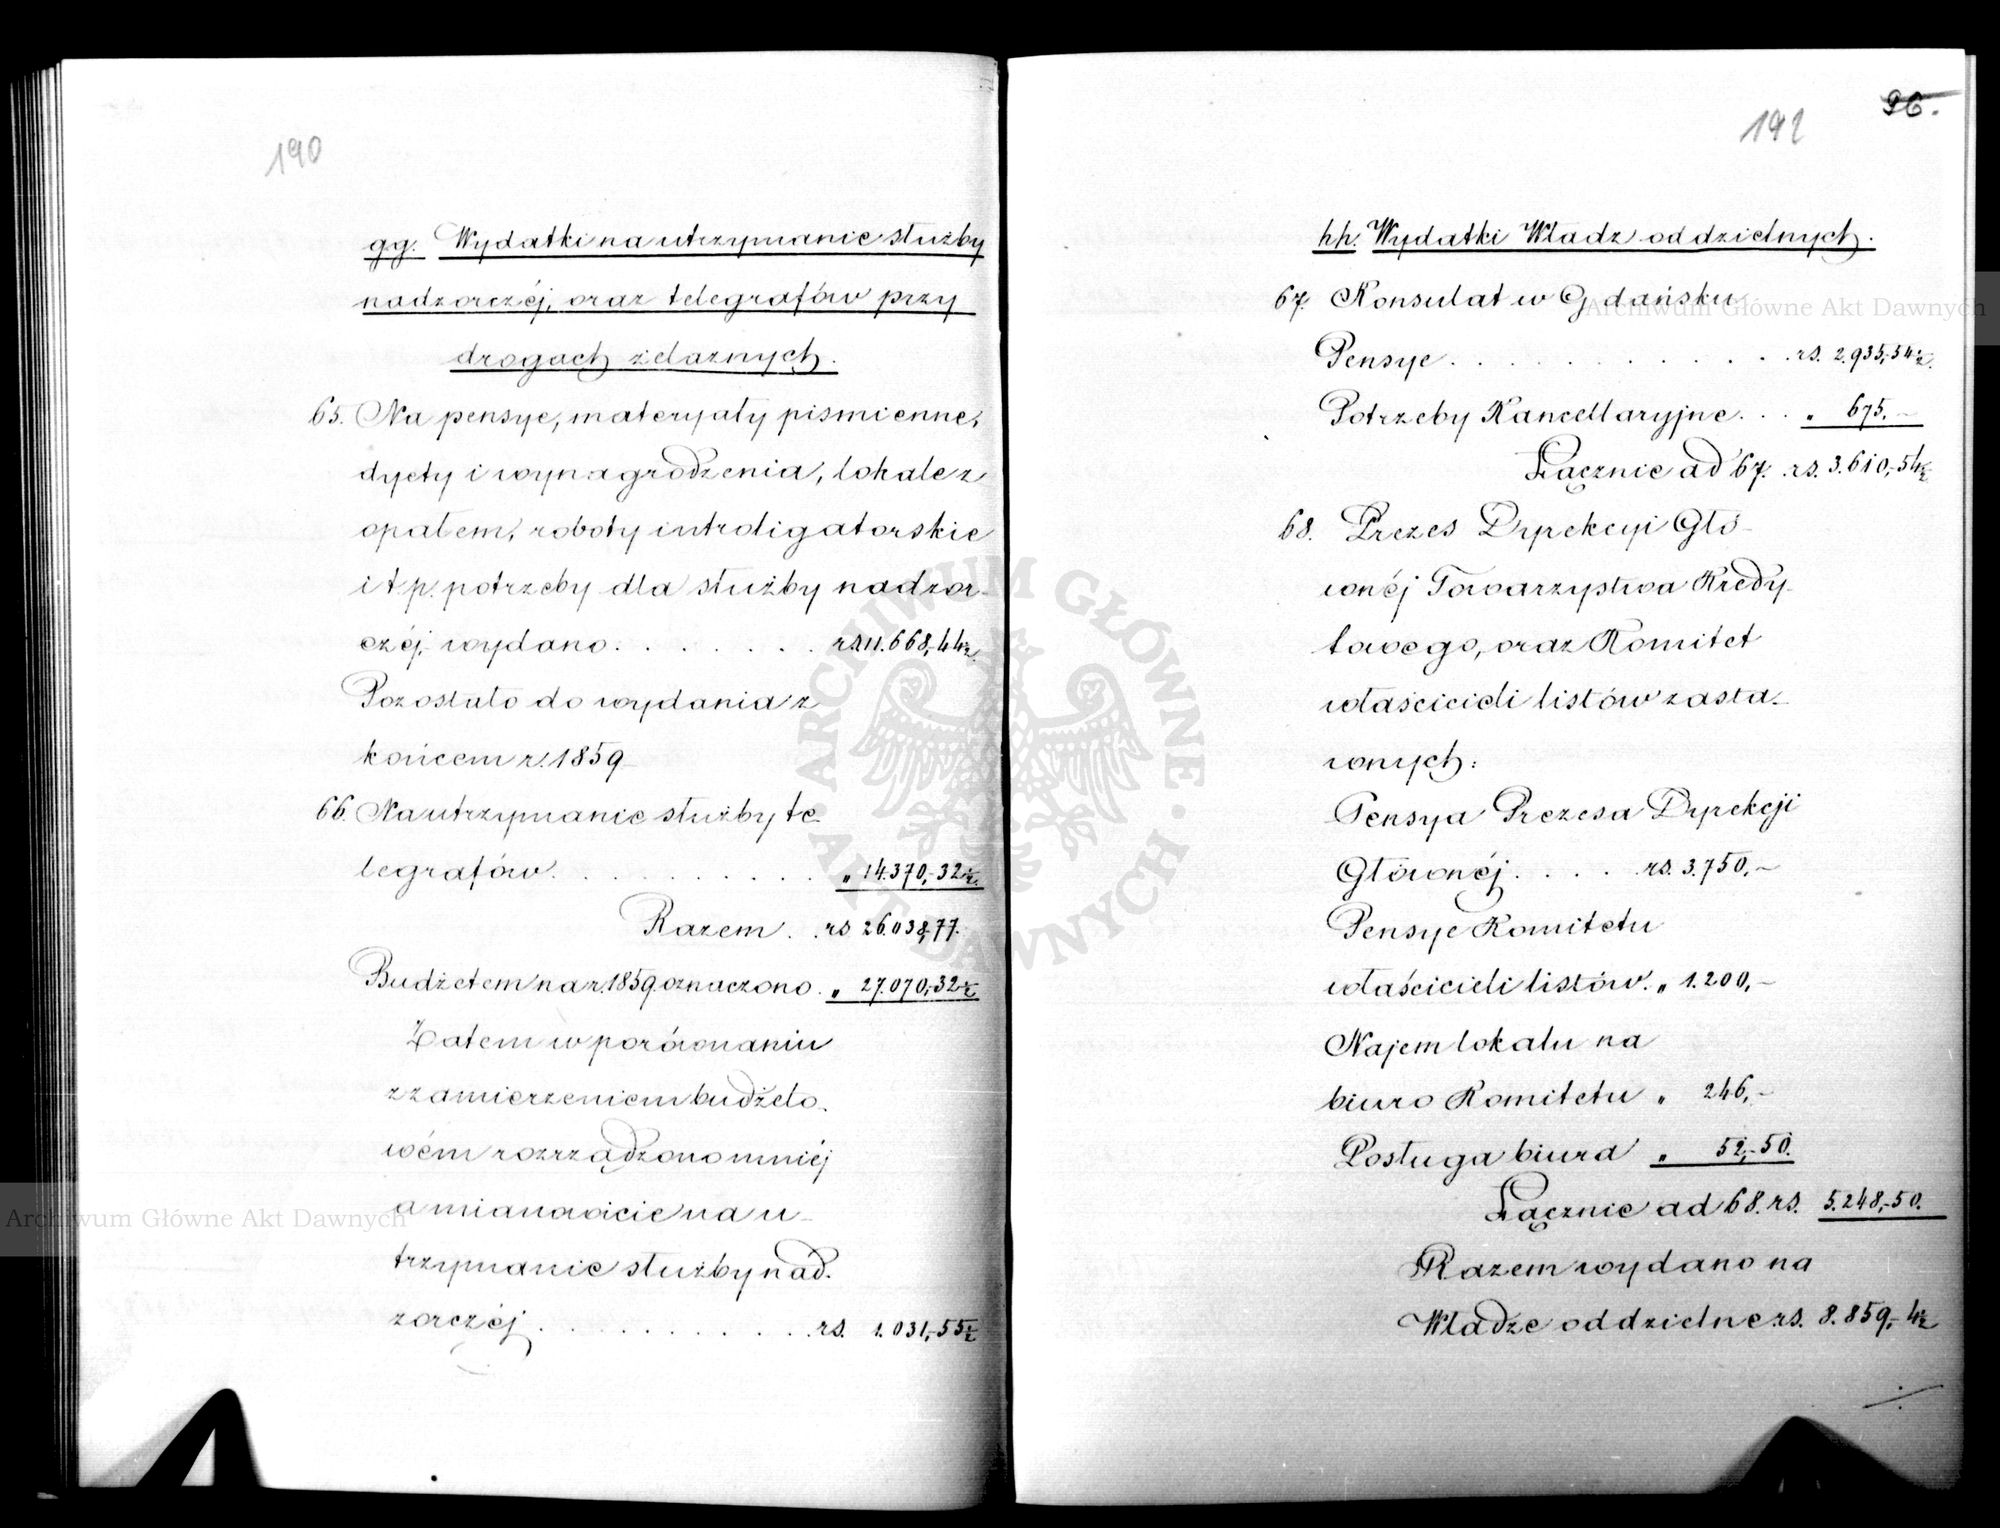 190
gg. Wydatki na utrzymanie służby
nadzorczéj, oraz telegrafów przy
drogach żelaznych.
65. Na pensye, materyały piśmienne,
dyety i wynagrodzenia, lokale z
opałem, roboty introligatorskie
i t p. potrzeby dla służby nadzor-
czéj, wydano . . . . . . . rs 11.668,44½
Pozostało do wydania z
końcem r. 1859
66. Na utrzymanie służby te-
legrafów . . . . . . . . . . „ 14.370,32½
Razem . . rs 26.038,77.
Budżetem na r. 1859 oznaczono . „ 27.070,32½
Zatem w porównaniu
z zamierzeniem budżeto-
wém rozrządzono mniéj
a mianowicie na u-
trzymanie służby nad-
zorczéj . . . . . . . . . . . rs. 1.031,55½
96.
191
hh. Wydatki Władz oddzielnych.
67. Konsulat w Gdańsku
Pensye . . . . . . . . . . . . rs. 2.935,54½
Potrzeby Kancellaryjne . . . „ 675.–
Łącznie ad 67. rs. 3.610,54½
68. Prezes Dyrekcyi Głó-
wnéj Towarzystwa Kredy-
towego, oraz Komitet
właścicieli listów zasta-
wnych:
Pensya Prezesa Dyrekcji
Głównéj . . . . . rs. 3.750,–
Pensye Komitetu
właścicieli listów . „ 1.200,–
Najem lokalu na
biuro Komitetu „ 246,–
Posługa biura „ 52,50.
Łącznie ad 68. rs. 5.248,50.
Razem wydano na
Władze oddzielne rs. 8.859,4½
Archiwum Główne Akt Dawnych
Archiwum Główne Akt Dawnych
ARCHIWUM GŁÓWNE · AKT DAWNYCH ·